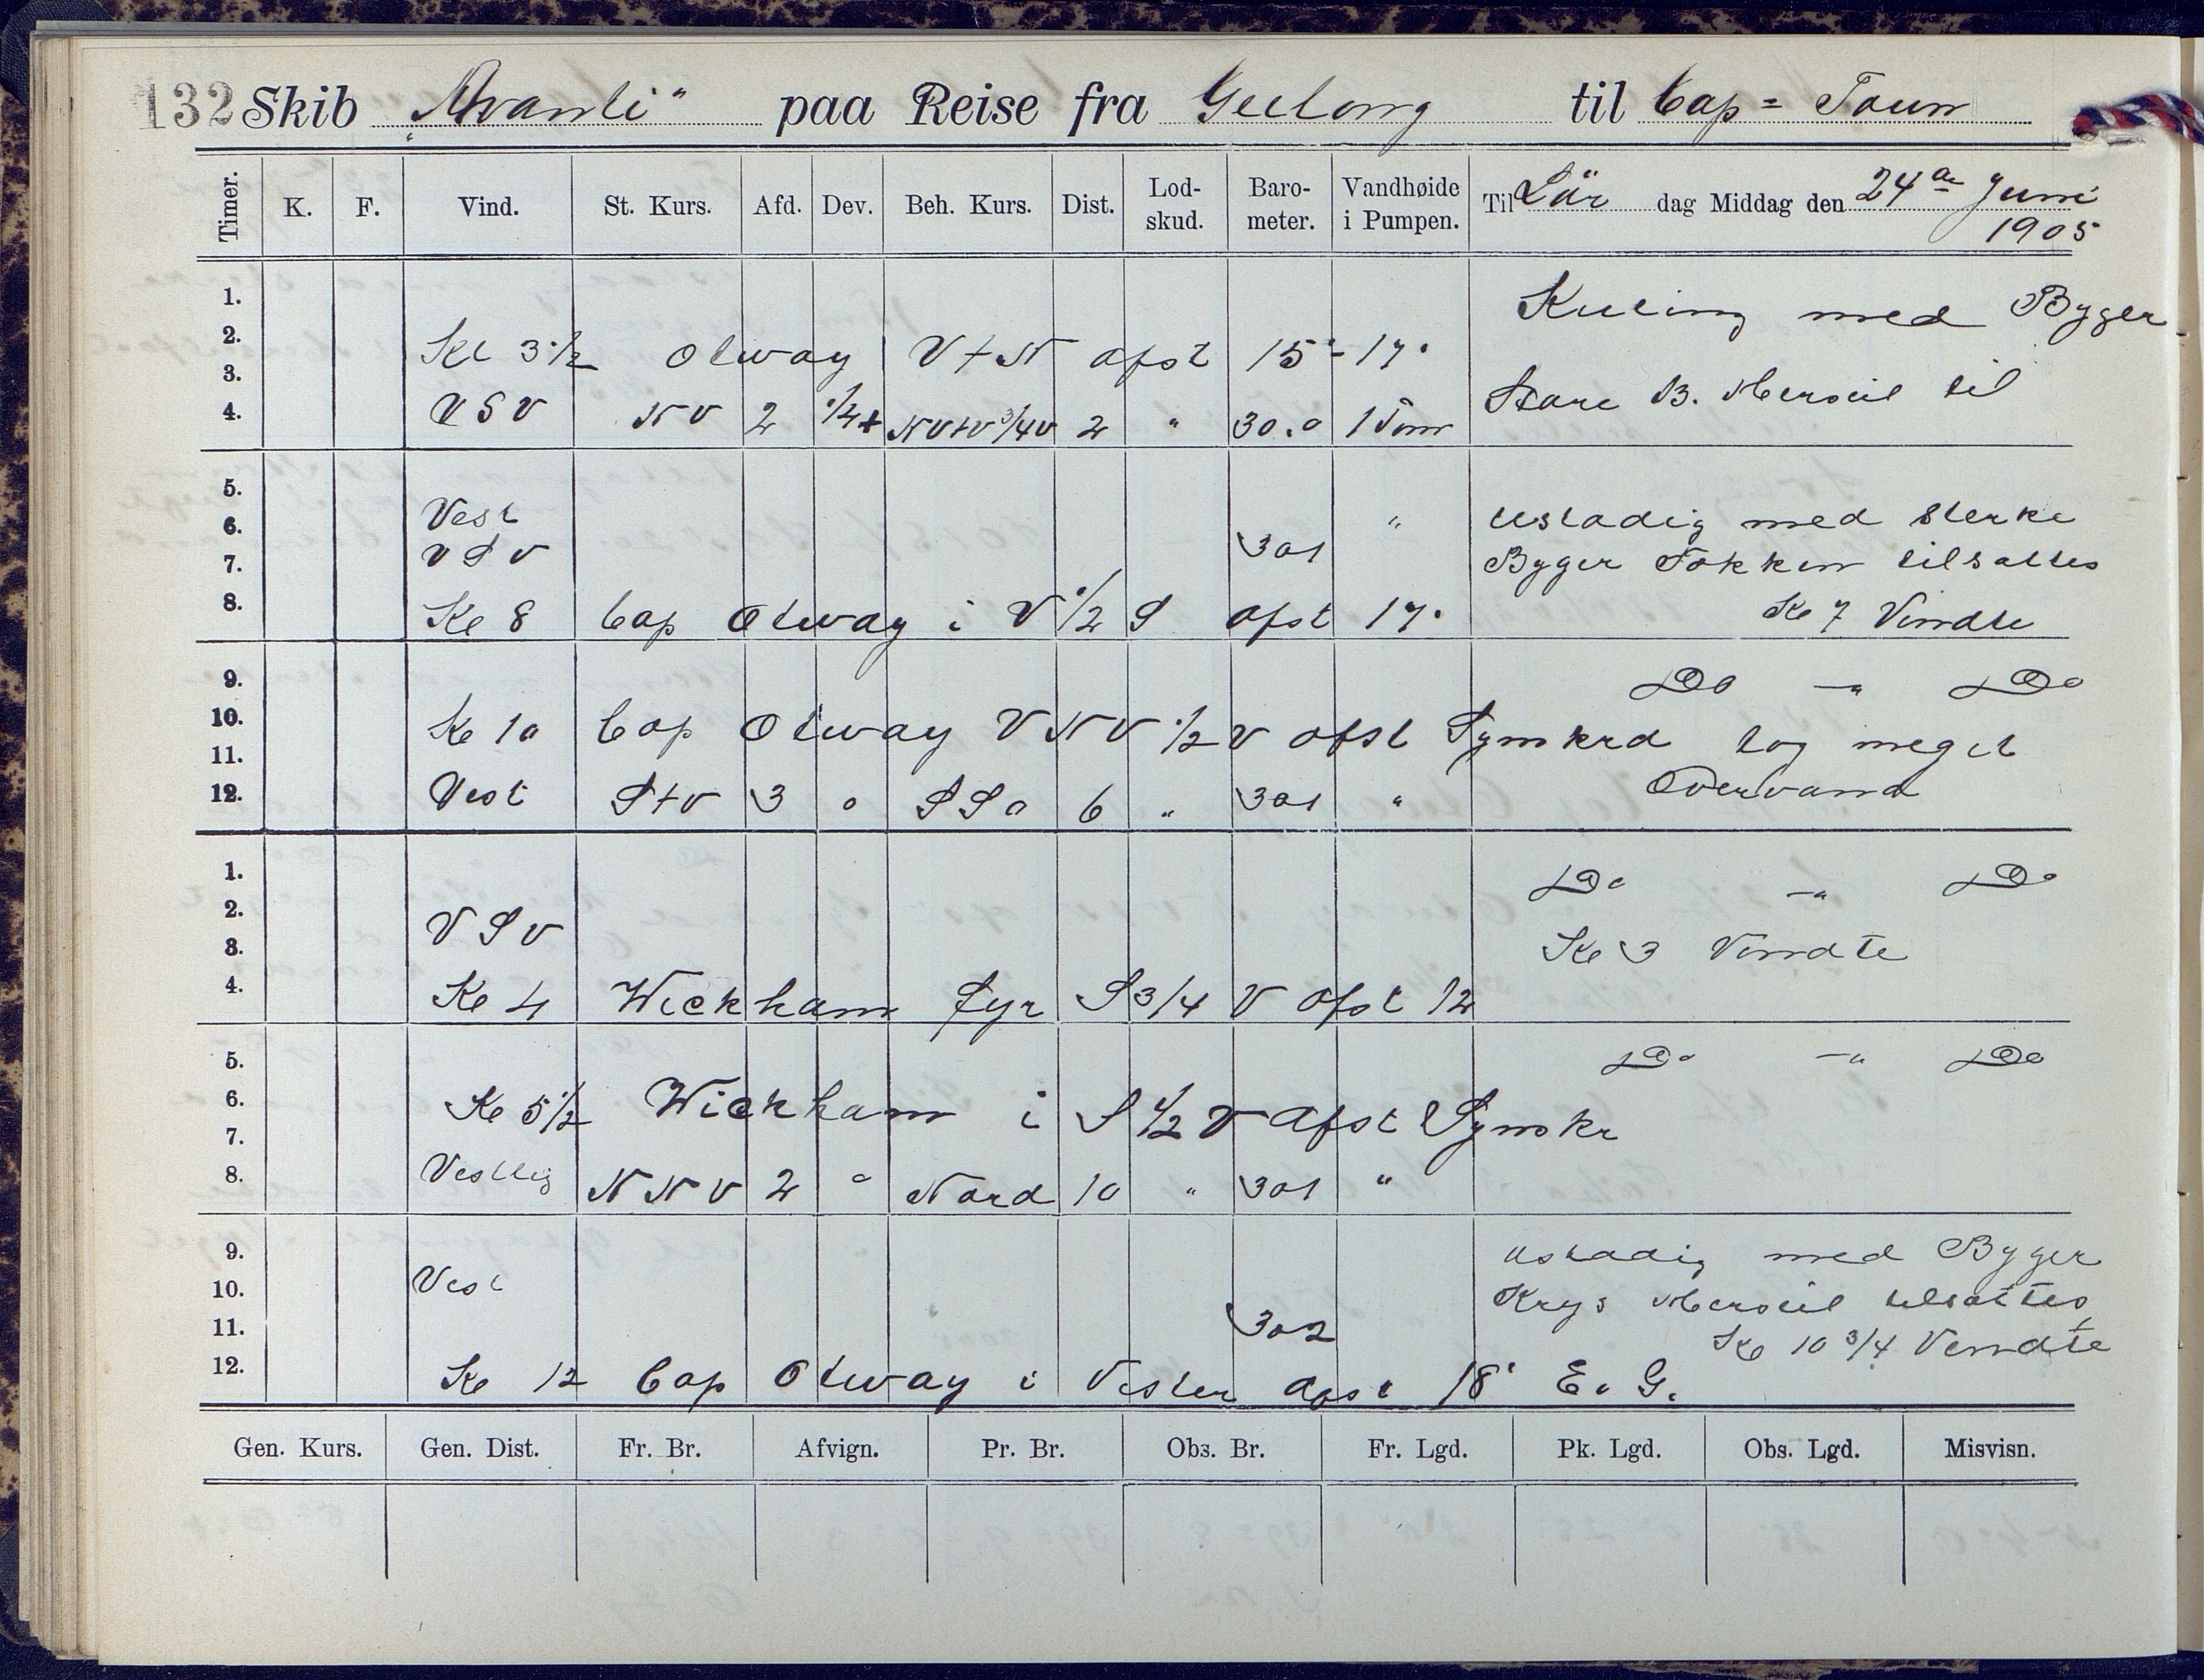 132 Skib "Avanti" paa Reise fra Geelong til Cap = Town
Timer. K. F. Vind. St. Kurs. Afd. Dev. Beh. Kurs. Dist. Lod-skud. Baro-meter. Vandhøide i Pumpen. Til Lör dag Middag den 24de Juni 1905
1. Kuling med Byger
2.
3. Kl 3 1/2 Otway V t N afst 15'-17'
Store B. Merseil til
4. VSV NV 2 1/2+ NVtV 3/4 V 2 " 30.0 1 Tom
5.
6. Vest " Ustadig med sterke
7. VSV 301 Byger Fokken tilsattes
8. Kl 8 Cap Otway i V 1/2 S afst 17' Kl 7 Vendte
9. Do -"- Do
10. Kl 10 Cap Otway VNV 1/2 V afst Synskrd tog meget
11.
12. Vest StV 3 0 SSO 6 " 301 " Overvand
1. Do -"- Do
2. VSV
3. Kl 3 Vendte
4. Kl 4 Wickham fyr S 3/4 V afst 12
5. Do -"- Do
6. Kl 5 1/2 Wickham i S 1/2 V afst Synskr
7.
8. Vestlig NNV 2 0 Nord 10 " 301 "
9. Ustadig med Byger
10. Vest Krys Merseil tilsattes
11. 302 Kl 10 3/4 Vendte
12. Kl 12 Cap Otway i Vester afst 18' E. G.
Gen. Kurs. Gen. Dist. Fr. Br. Afvign. Pr. Br. Obs. Br. Fr. Lgd. Pk. Lgd. Obs. Lgd. Misvisn.